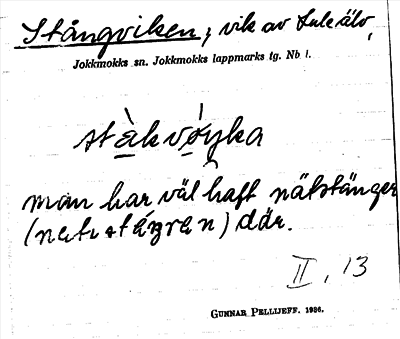 Stångviken, vik av Lule älv,
Jokkmokks sn. Jokkmokks lappmarks tg. Nb l.
stàkvøyka
man har väl haft nätstänger
där.
II, 13
GUNNAR PELLIJEFF. 1936.